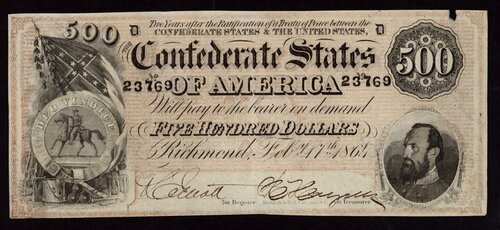 Two Years after the Ratification of a Treaty of Peace between the
CONFEDERATE STATES & THE UNITED STATES,
500 D D 500
Confederate States
23769 No 23769
OF AMERICA
Will pay to the bearer on demand
FIVE HUNDRED DOLLARS
Richmond, Feb. 17th 1864
DEO VINDICE
for Register for Treasurer